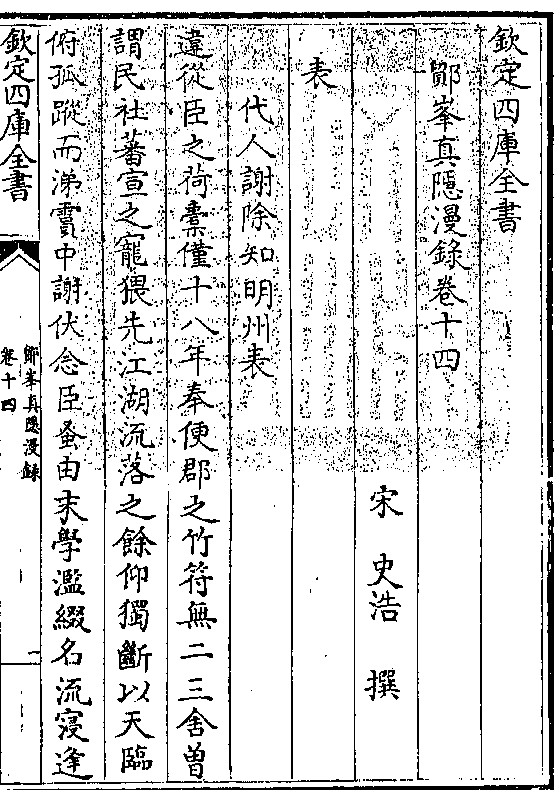 欽定四庫全書
鄮峯真隱漫錄卷十四
宋 史浩 撰
表
代人謝除知明州表
違從臣之荷橐僅十八年奉便郡之竹符無二三舍曽
謂民社蕃宣之寵猥先江湖流落之餘仰獨斷以天臨
俯孤蹤而涕霣中謝伏念臣蚤由末學濫綴名流寖逢
欽定四庫全書
鄮峯真隱漫録
卷十四
一